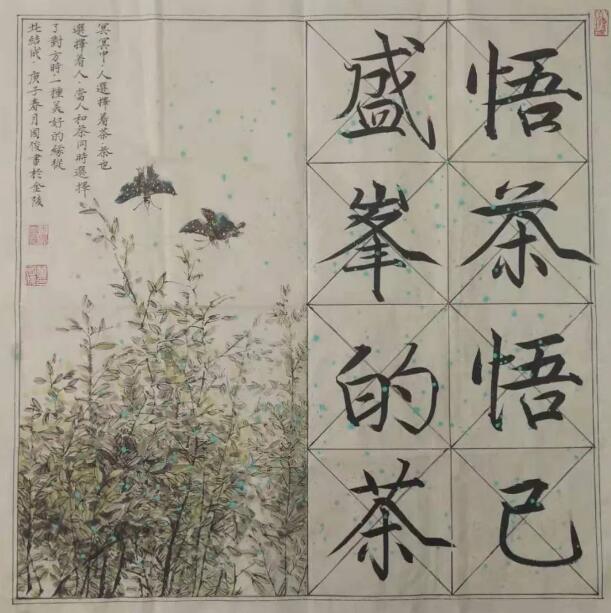 悟茶悟己
盛峯的茶
冥冥中·人選擇着茶·茶也
選擇着人·當人和茶同時選擇
了對方時·一種美好的緣從
此結成·庚子春月國俊書於金陵